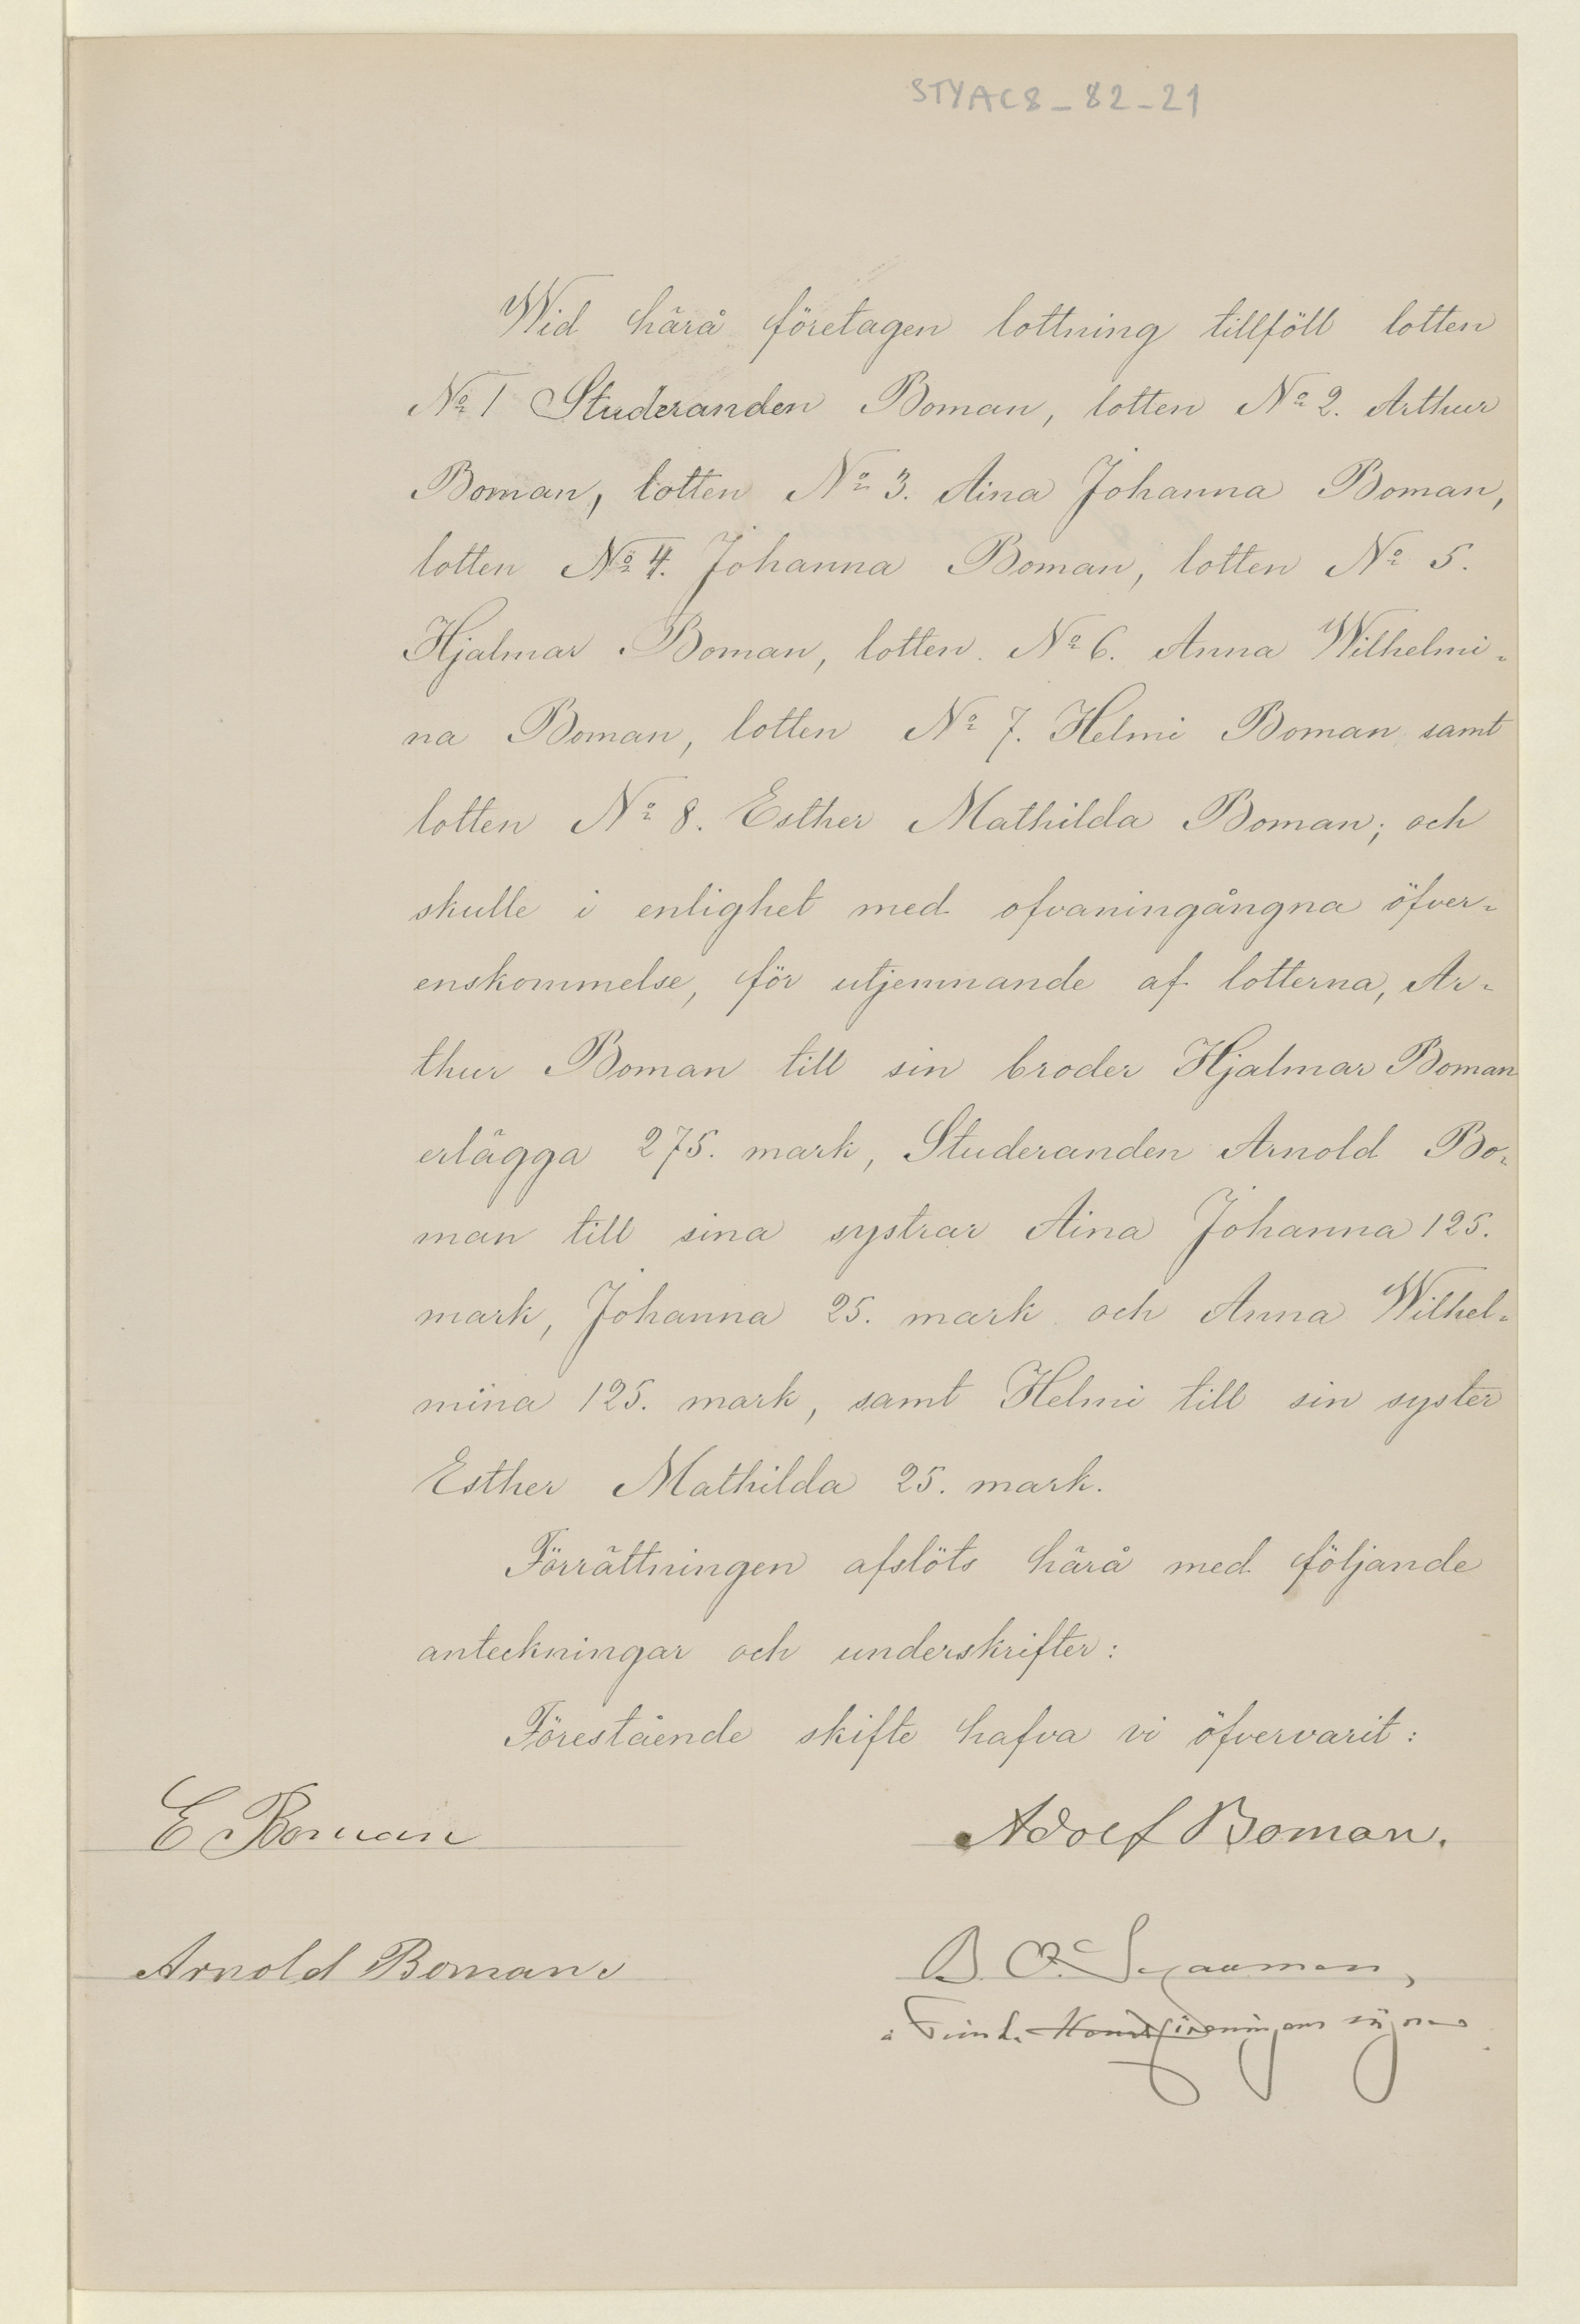 STYAC8_82_21
Wid härå företagen lottning tillföll lotten
No 1 Studeranden Boman, lotten No 2. Arthur
Boman, lotten No 3. Aina Johanna Boman,
lotten No 4. Johanna Boman, lotten No 5.
Hjalmar Boman, lotten No 6. Anna Wilhelmi-
na Boman, lotten No 7. Helmi Boman samt
lotten No 8. Esther Mathilda Boman; och
skulle i enlighet med ofvaningångna öfver-
enskommelse, för utjemnande af lotterna, Ar-
thur Boman till sin broder Hjalmar Boman
erlägga 275. mark, Studeranden Arnold Bo-
man till sina systrar Aina Johanna 125.
mark, Johanna 25. mark och Anna Wilhel-
mina 125. mark, samt Helmi till sin syster
Esther Mathilda 25. mark.
Förrättningen afslöts härå med följande
anteckningar och underskrifter:
Förestående skifte hafva vi öfvervarit:
E Boman
Adolf Boman.
Arnold Boman
B. O. Schauman,
å Finska Konstföreningens vägnar